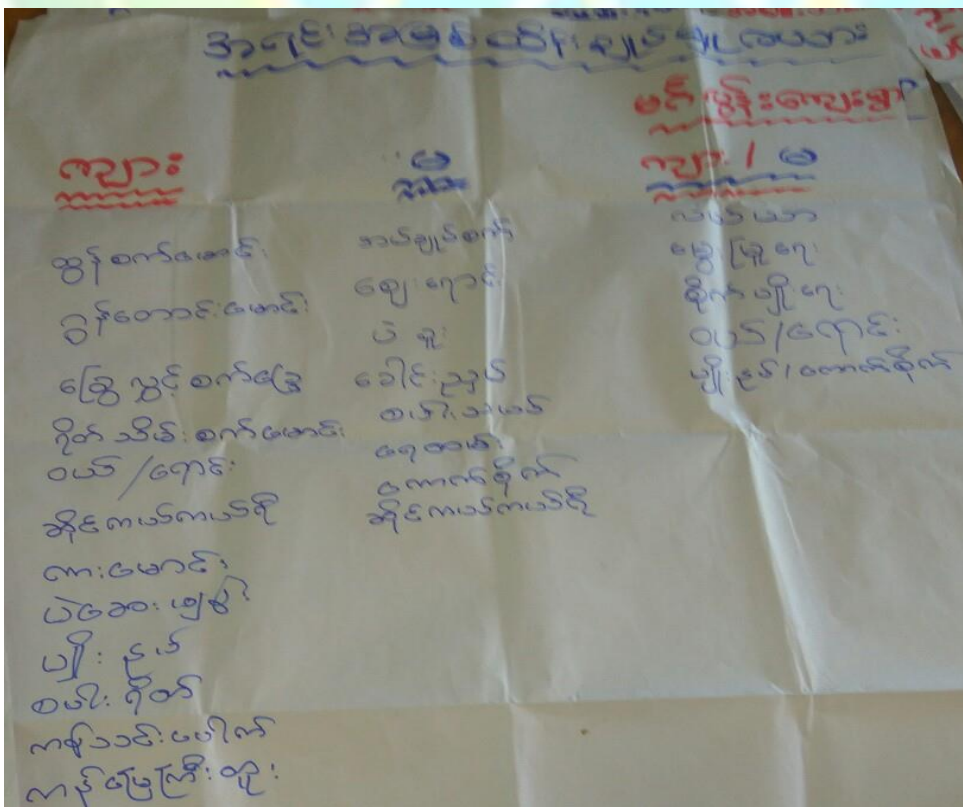 အရင်းအမြစ်ထိန်းချုပ်မှုလယား
မင်းလွှန်းကျေးရွာ
ကျား
မ
ကျား / မ
ထွန်စက်မောင်း
ဂွန်တောင်းမောင်း
ခြွေလှွင့်စက်ခြွေ
ရိတ်သိမ်းစက်မောင်း
ဝယ်/ရောင်း
ဆိုင်ကယ်ကယ်ရီ
ကားမောင်း
ပဲဆေးဖျန်း
ပျိုးနှုတ်
စပါးရိတ်
ကန်သင်းပေါက်
ကန်မြေကြီးတူး
အပ်ချုပ်စက်
ဈေးရောင်း
ပဲခူး
ခေါင်းညှပ်
စပါးသယ်
ရေခပ်
ကောက်စိုက်
ဆိုင်ကယ်ကယ်ရီ
လယ်ယာ
မွေးမြူရေး
စိုက်ပျိုးရေး
ဝယ်/ရောင်း
ပျိုးနှုတ်/ကောက်စိုက်